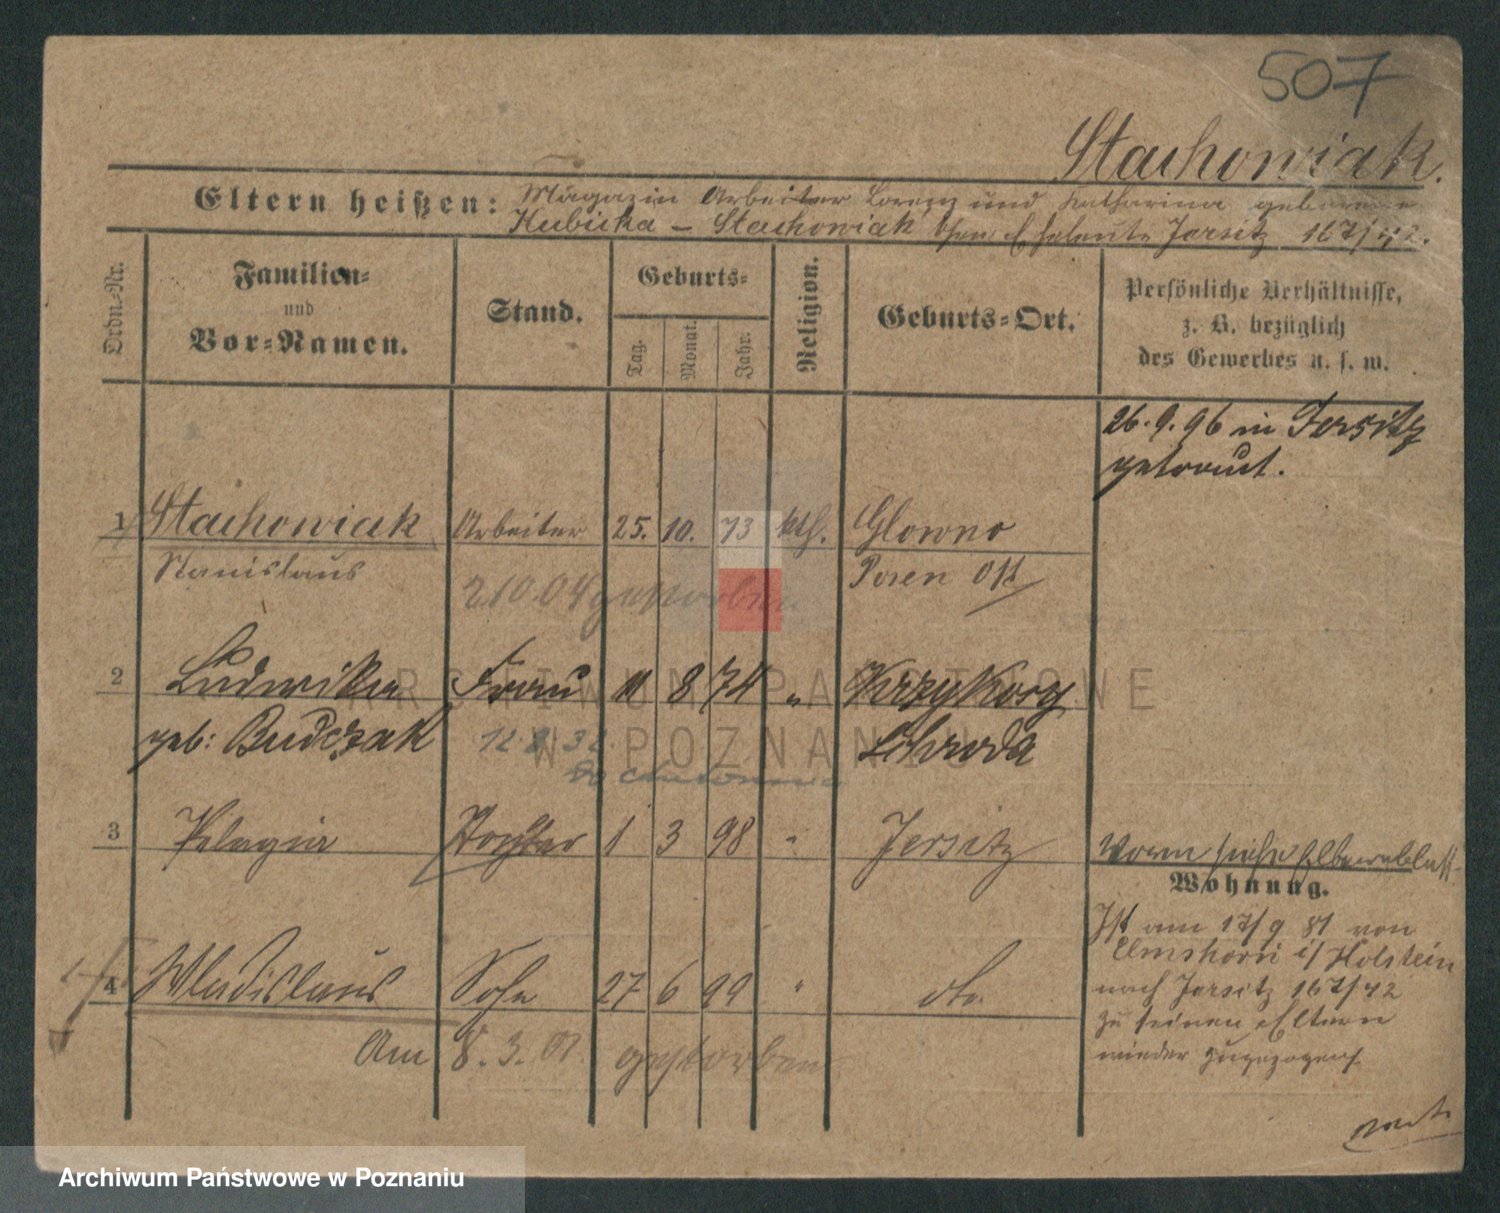 507
Stachowiak.
Eltern heißen: Magazin Arbeiter Lorenz und Katharina geborene
Kubicka – Stachowiak Eheleute Jersitz 167/42.
Ordn.-Nr.
Familien-
und
Vor-Namen.
Stand.
Geburts-
Tag.
Monat.
Jahr.
Religion.
Geburts-Ort.
Persönliche Verhältnisse,
z. B. bezüglich
des Gewerbes u. s. w.
26.9.96 in Jersitz
getraut.
1 Stachowiak Arbeiter 25. 10. 73 kth. Glowno
Stanislaus Posen Ost
2.10.04 gestorben
2 Ludwika Frau 11 8 74 " Krzykosy
geb: Budczak Schroda
12 8 32
3 Pelagia Tochter 1 3 98 " Jersitz
Vorm siehe
Wohnung.
Ist am 17/9 81 von
Elmshorn i/ Holstein
nach Jersitz 167/42
zu seinen Eltern
wieder zugezogen.
4 Wladislaus Sohn 27 6 99 " do.
Am 8. 3. 01. gestorben
ARCHIWUM PAŃSTWOWE
W POZNANIU
Archiwum Państwowe w Poznaniu